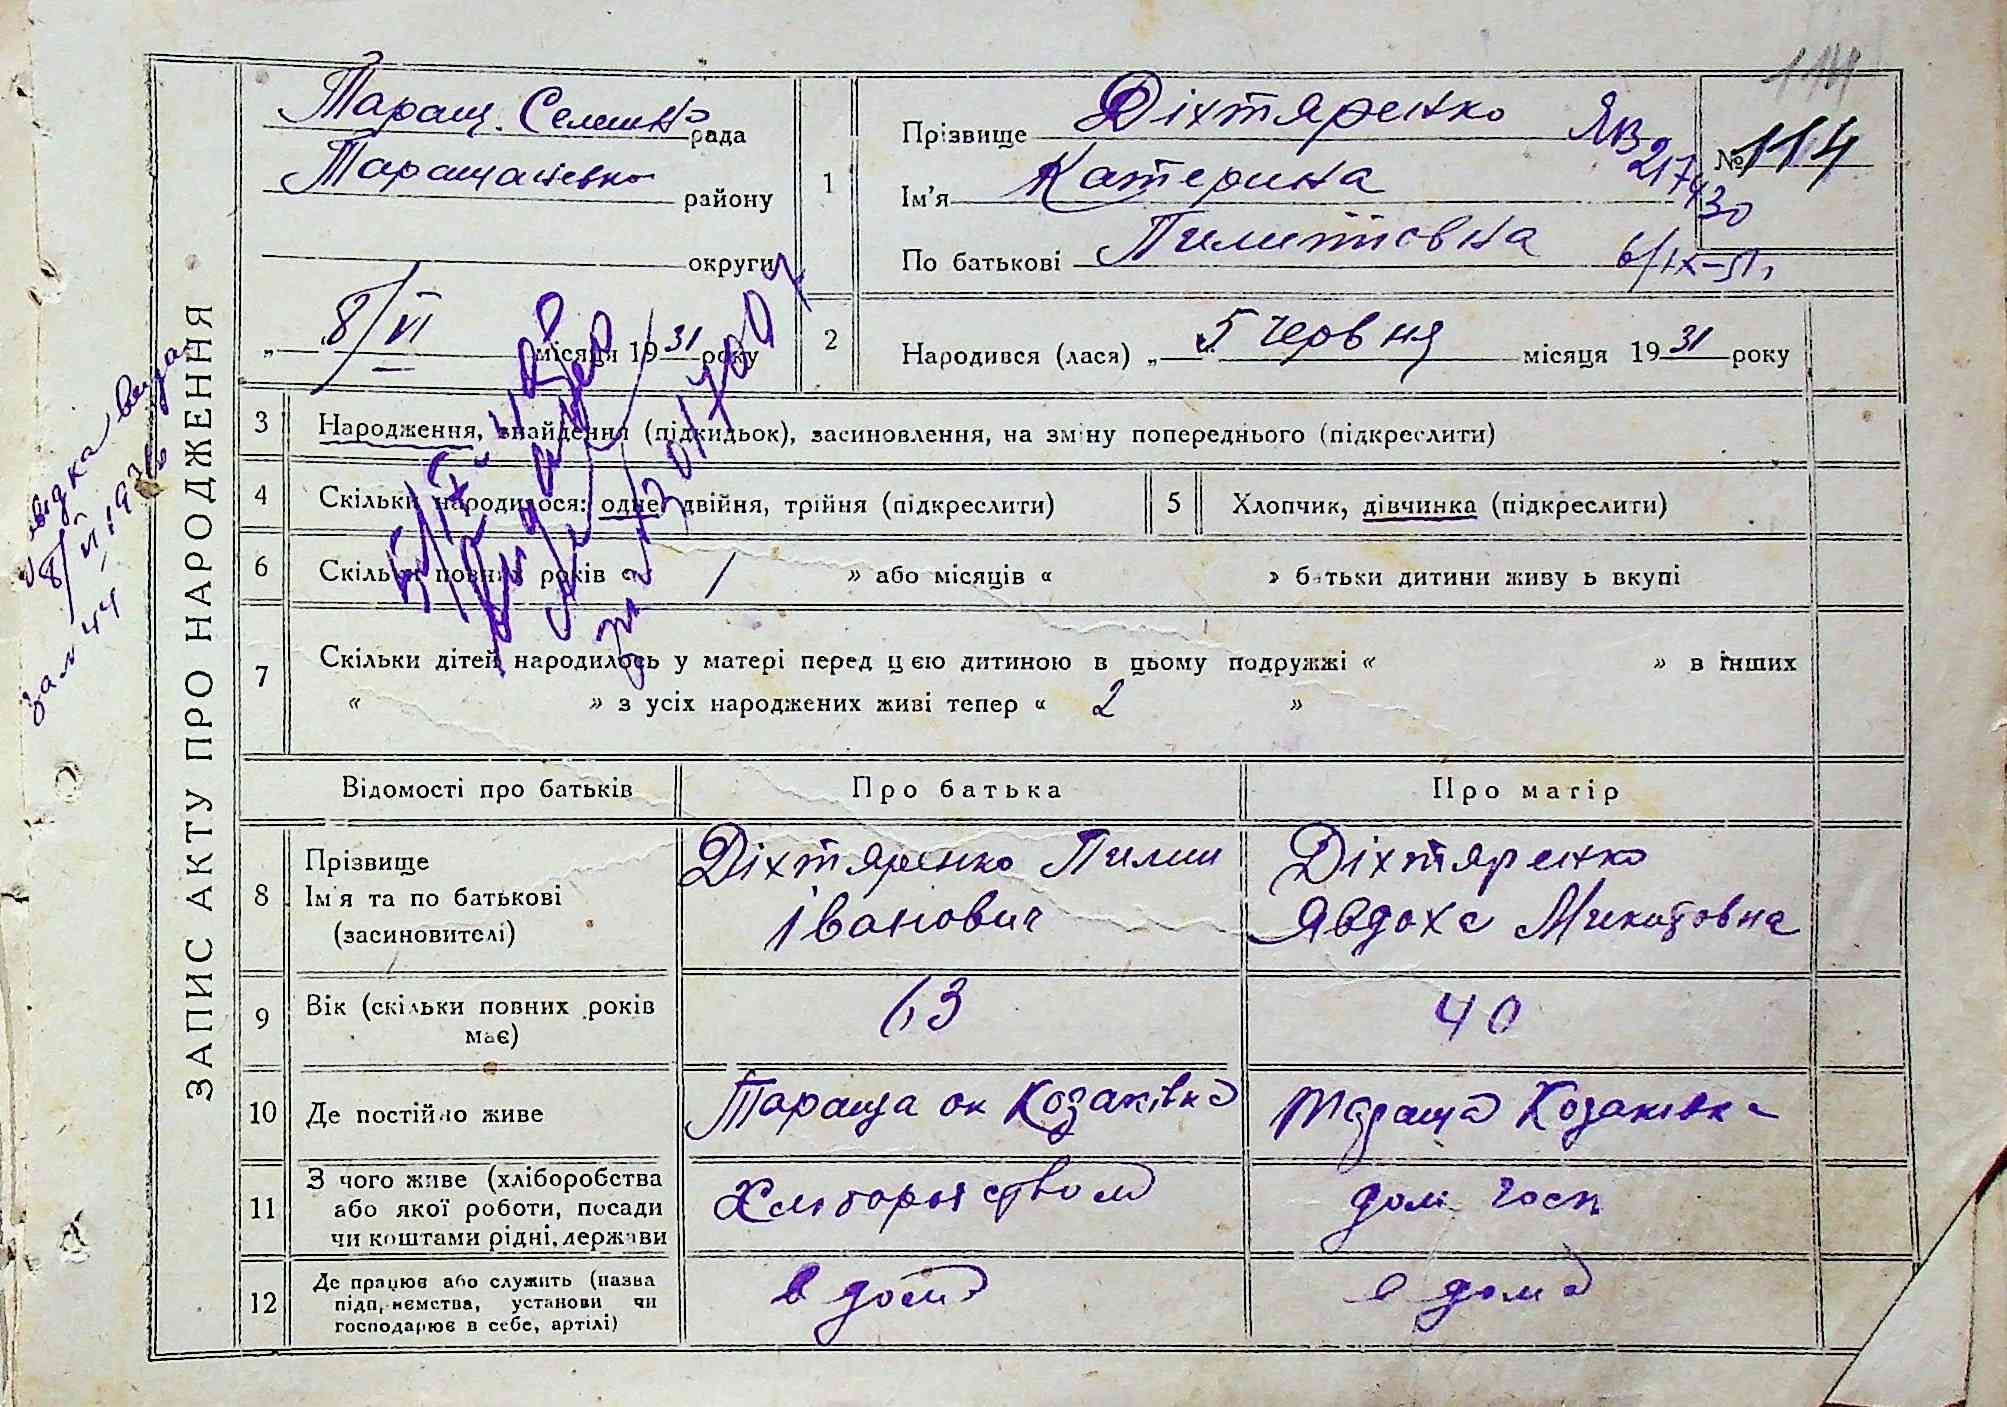 ЗАПИС АКТУ ПРО НАРОДЖЕННЯ
114
Таращ. Селищна рада
Таращанського району
округи
„ 8/VI місяця 1931 року
1
Прізвище Діхтяренко
Ім'я Катерина
По батькові Пилипівна
ЯВ
217430
6/IX-51
№ 114
2
Народився (лася) „ 5 червня місяця 1931 року
3 Народження, знайдення (підкидьок), засиновлення, на зміну попереднього (підкреслити)
4 Скільки народилося: одне, двійня, трійня (підкреслити)
5 Хлопчик, дівчинка (підкреслити)
6 Скільки повних років « / » або місяців « » батьки дитини живуть вкупі
7 Скільки дітей народилось у матері перед цією дитиною в цьому подружжі « » в інших
« » з усіх народжених живі тепер « 2 »
Відомості про батьків Про батька Про матір
8 Прізвище
Ім'я та по батькові
(засиновителі)
Діхтяренко Пилип
Іванович
Діхтяренко
Явдоха Микитовна
9 Вік (скільки повних років
має)
63
40
10 Де постійно живе
Тараща ок Козаківка
Тараща Козаківка
11 З чого живе (хліборобства
або якої роботи, посади
чи коштами рідні, держави
Хліборобством
дом госп
12 Де працює або служить (назва
підприємства, установи чи
господарює в себе, артілі)
в дома
в дома
8/VI 1936
44